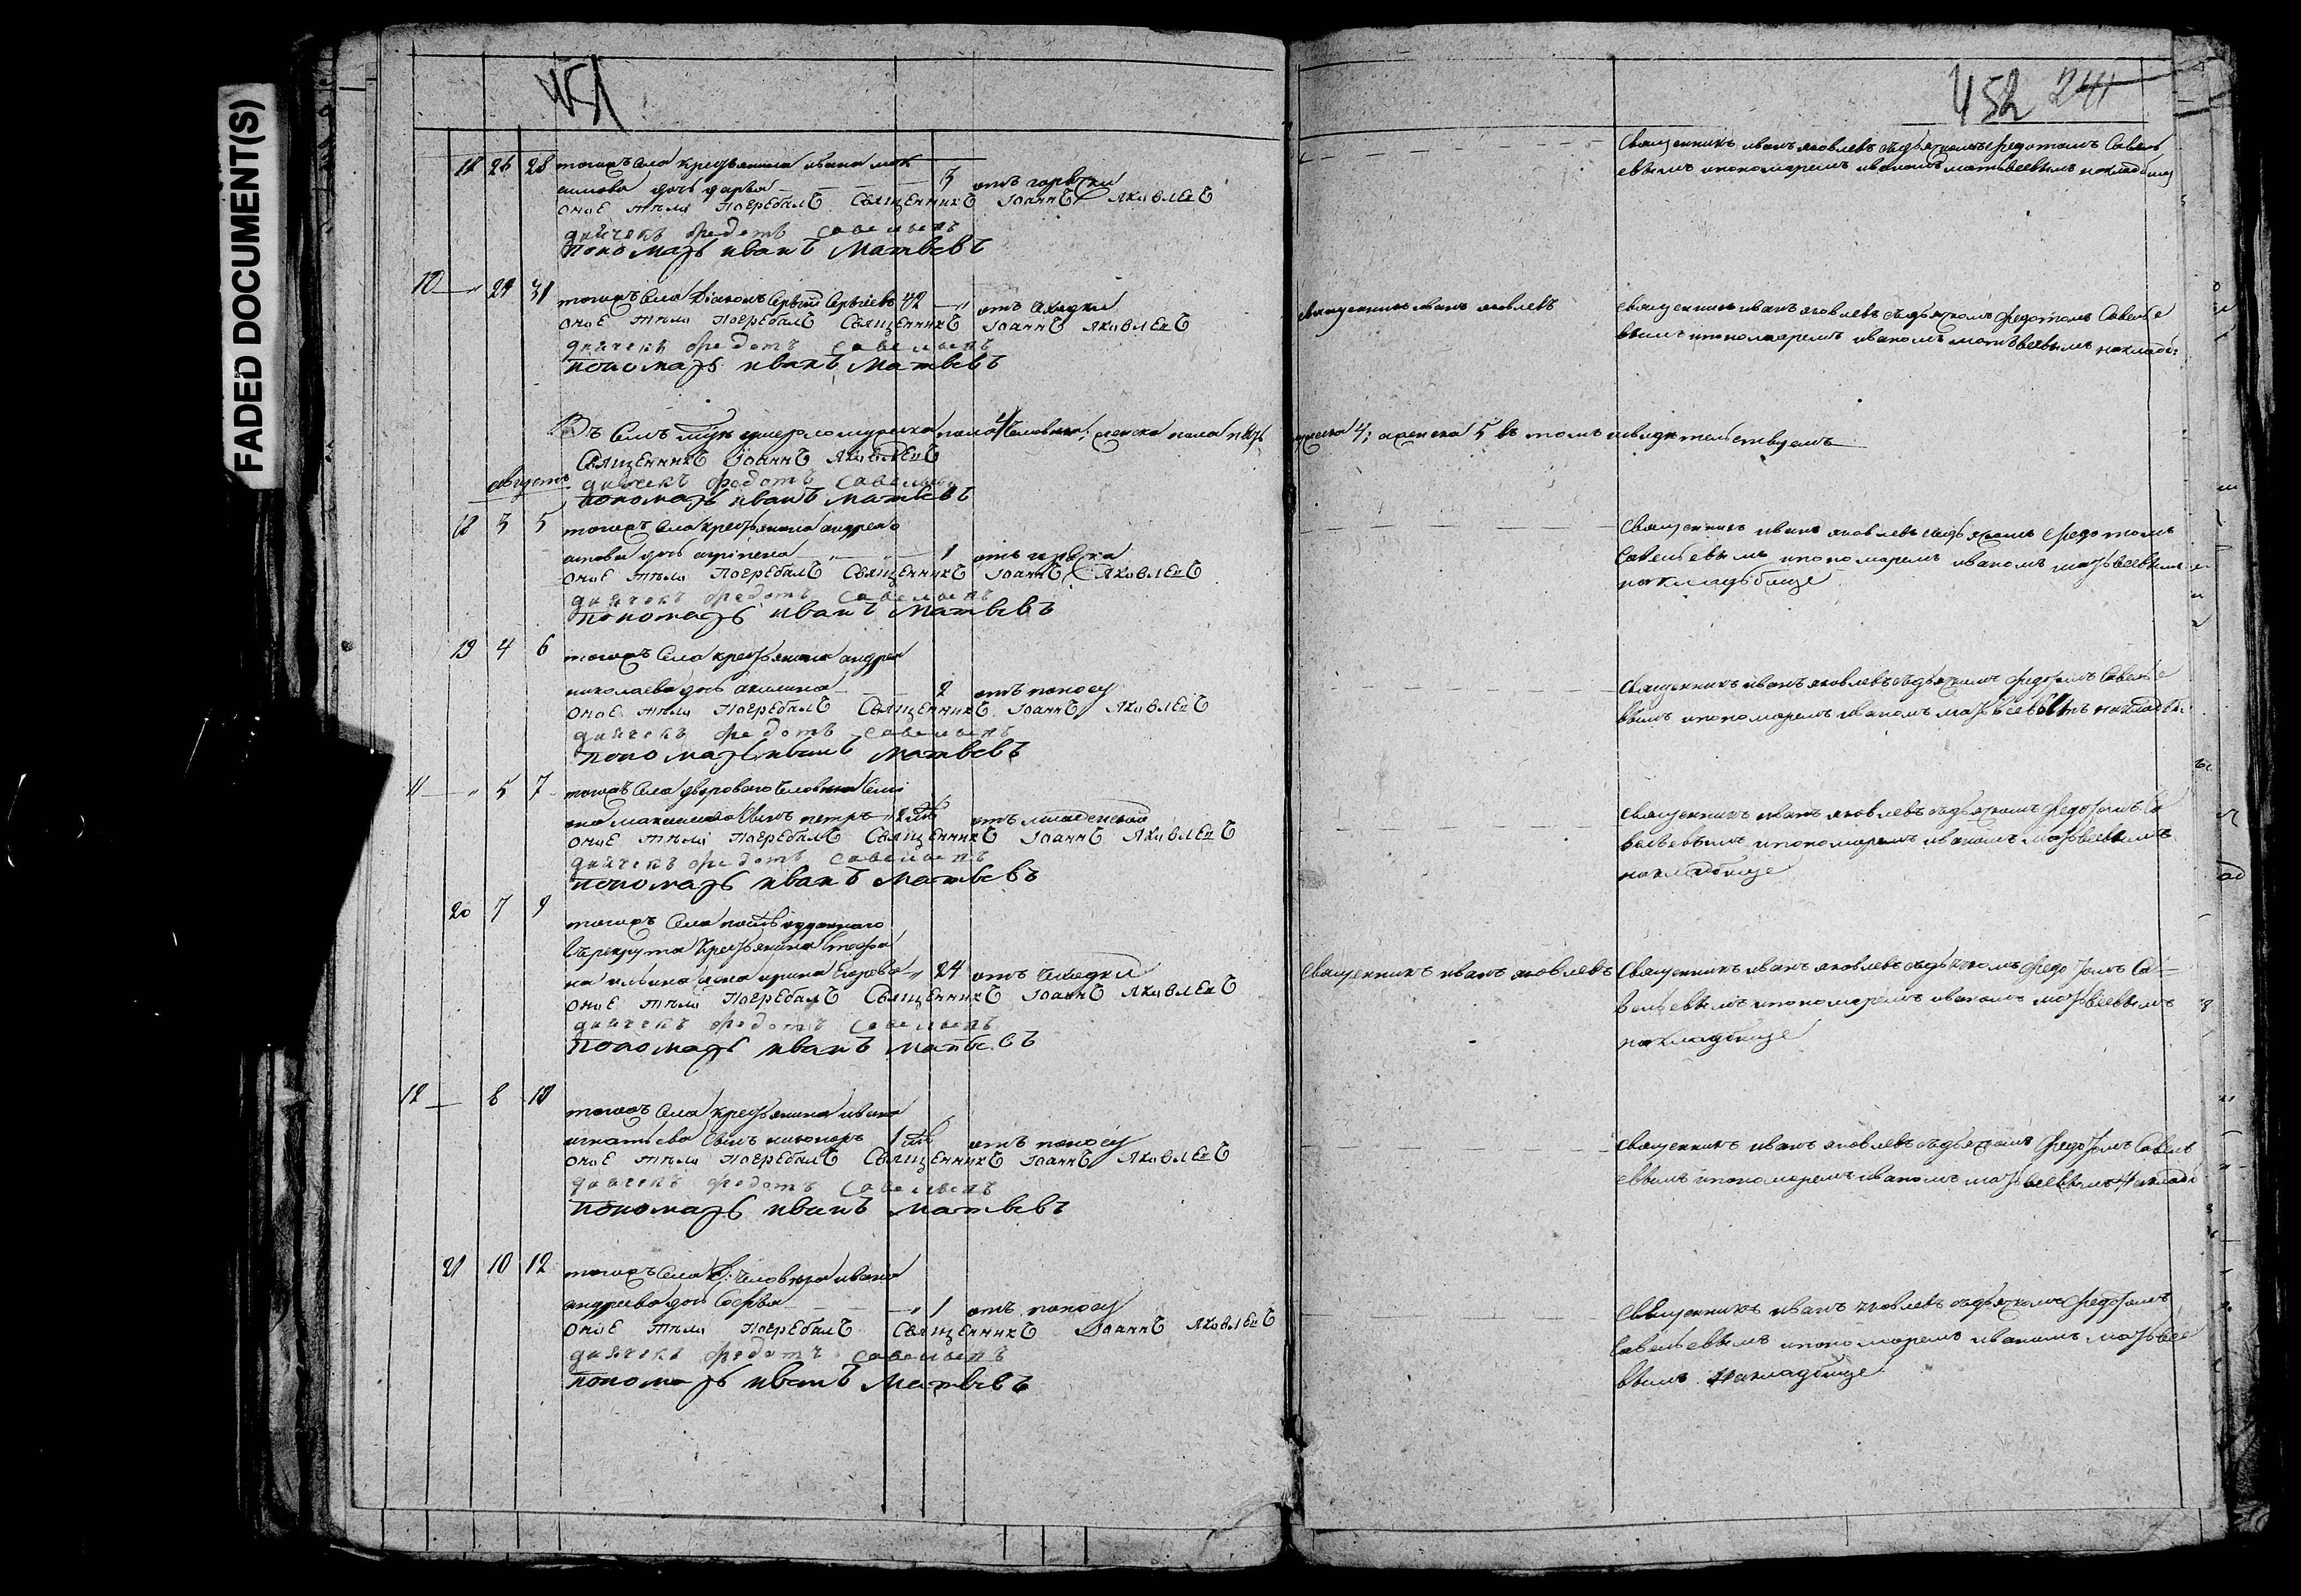 FADED DOCUMENT(S)
451
452 241
26 28 тогожъ села крестьянина ивана мак
симова дочь дарья 3 отъ горячки
оное тѣло погребалъ священникъ Iоаннъ Яковлевъ
дьячекъ федотъ савельевъ
пономарь иванъ матвѣевъ
священникъ иванъ яковлевъ съ дьячкомъ федотомъ савель
евымъ и пономаремъ иваномъ матвеевымъ на кладбищ
10 29 31 тогожъ села дiаконъ 42 отъ чахотки
оное тѣло погребалъ священникъ Iоаннъ Яковлевъ
дьячекъ федотъ савельевъ
пономарь иванъ матвѣевъ
священникъ иванъ яковлевъ
священникъ иванъ яковлевъ съ дьячкомъ федотомъ савелье
вымъ и пономаремъ иваномъ матвеевымъ на кладб:
Въ семъ м҃цѣ умерло мужеска пола 4 человека, женска пола пять
мужеска 4; женска 5 въ томъ и свидѣтельствуемъ
священникъ Iоаннъ Яковлевъ
августъ
дьячекъ федотъ савельевъ
пономарь иванъ матвѣевъ
18 3 5 тогожъ села крестьянина андрея
дочь 1 отъ
оное тѣло погребалъ священникъ Iоаннъ Яковлевъ
дьячекъ федотъ савельевъ
пономарь иванъ матвѣевъ
священникъ иванъ яковлевъ съ дьячкомъ федотомъ
савельевымъ и пономаремъ иваномъ матвеевымъ
на кладбище
19 4 6 тогожъ села крестьянина андрея
николаева дочь акилина 2 отъ поносу
оное тѣло погребалъ священникъ Iоаннъ Яковлевъ
дьячекъ федотъ савельевъ
пономарь иванъ матвѣевъ
священникъ иванъ яковлевъ съ дьячкомъ федотомъ савелье
вымъ и пономаремъ иваномъ матвеевымъ на кладби
11 5 7 тогожъ села двороваго человека семi
она максимова сынъ петръ отъ младенской
оное тѣло погребалъ священникъ Iоаннъ Яковлевъ
дьячекъ федотъ савельевъ
пономарь иванъ матвѣевъ
священникъ иванъ яковлевъ съ дьячкомъ федотомъ са
вельевымъ и пономаремъ иваномъ матвеевымъ
на кладбище
20 7 9 тогожъ села отданнаго
въ рекруты крестьянина стефа
на ильина жена ирина егорова 24 отъ чахотки
оное тѣло погребалъ священникъ Iоаннъ Яковлевъ
дьячекъ федотъ савельевъ
пономарь иванъ матвѣевъ
священникъ иванъ яковлевъ
священникъ иванъ яковлевъ съ дьячкомъ федотомъ са
вельевымъ и пономаремъ иваномъ матвеевымъ
на кладбище
12 8 10 тогожъ села крестьянина ивана
игнатьева сынъ никаноръ отъ поносу
оное тѣло погребалъ священникъ Iоаннъ Яковлевъ
дьячекъ федотъ савельевъ
пономарь иванъ матвѣевъ
священникъ иванъ яковлевъ съ дьячкомъ федотомъ савель
евымъ и пономаремъ иваномъ матвеевымъ на кладб
21 10 12 тогожъ села д: человека ивана
андреева дочь софья 1 отъ поносу
оное тѣло погребалъ священникъ Iоаннъ Яковлевъ
дьячекъ федотъ савельевъ
пономарь иванъ матвѣевъ
священникъ иванъ яковлевъ съ дьячкомъ федотомъ
савельевымъ и пономаремъ иваномъ матвее
вымъ на кладбище